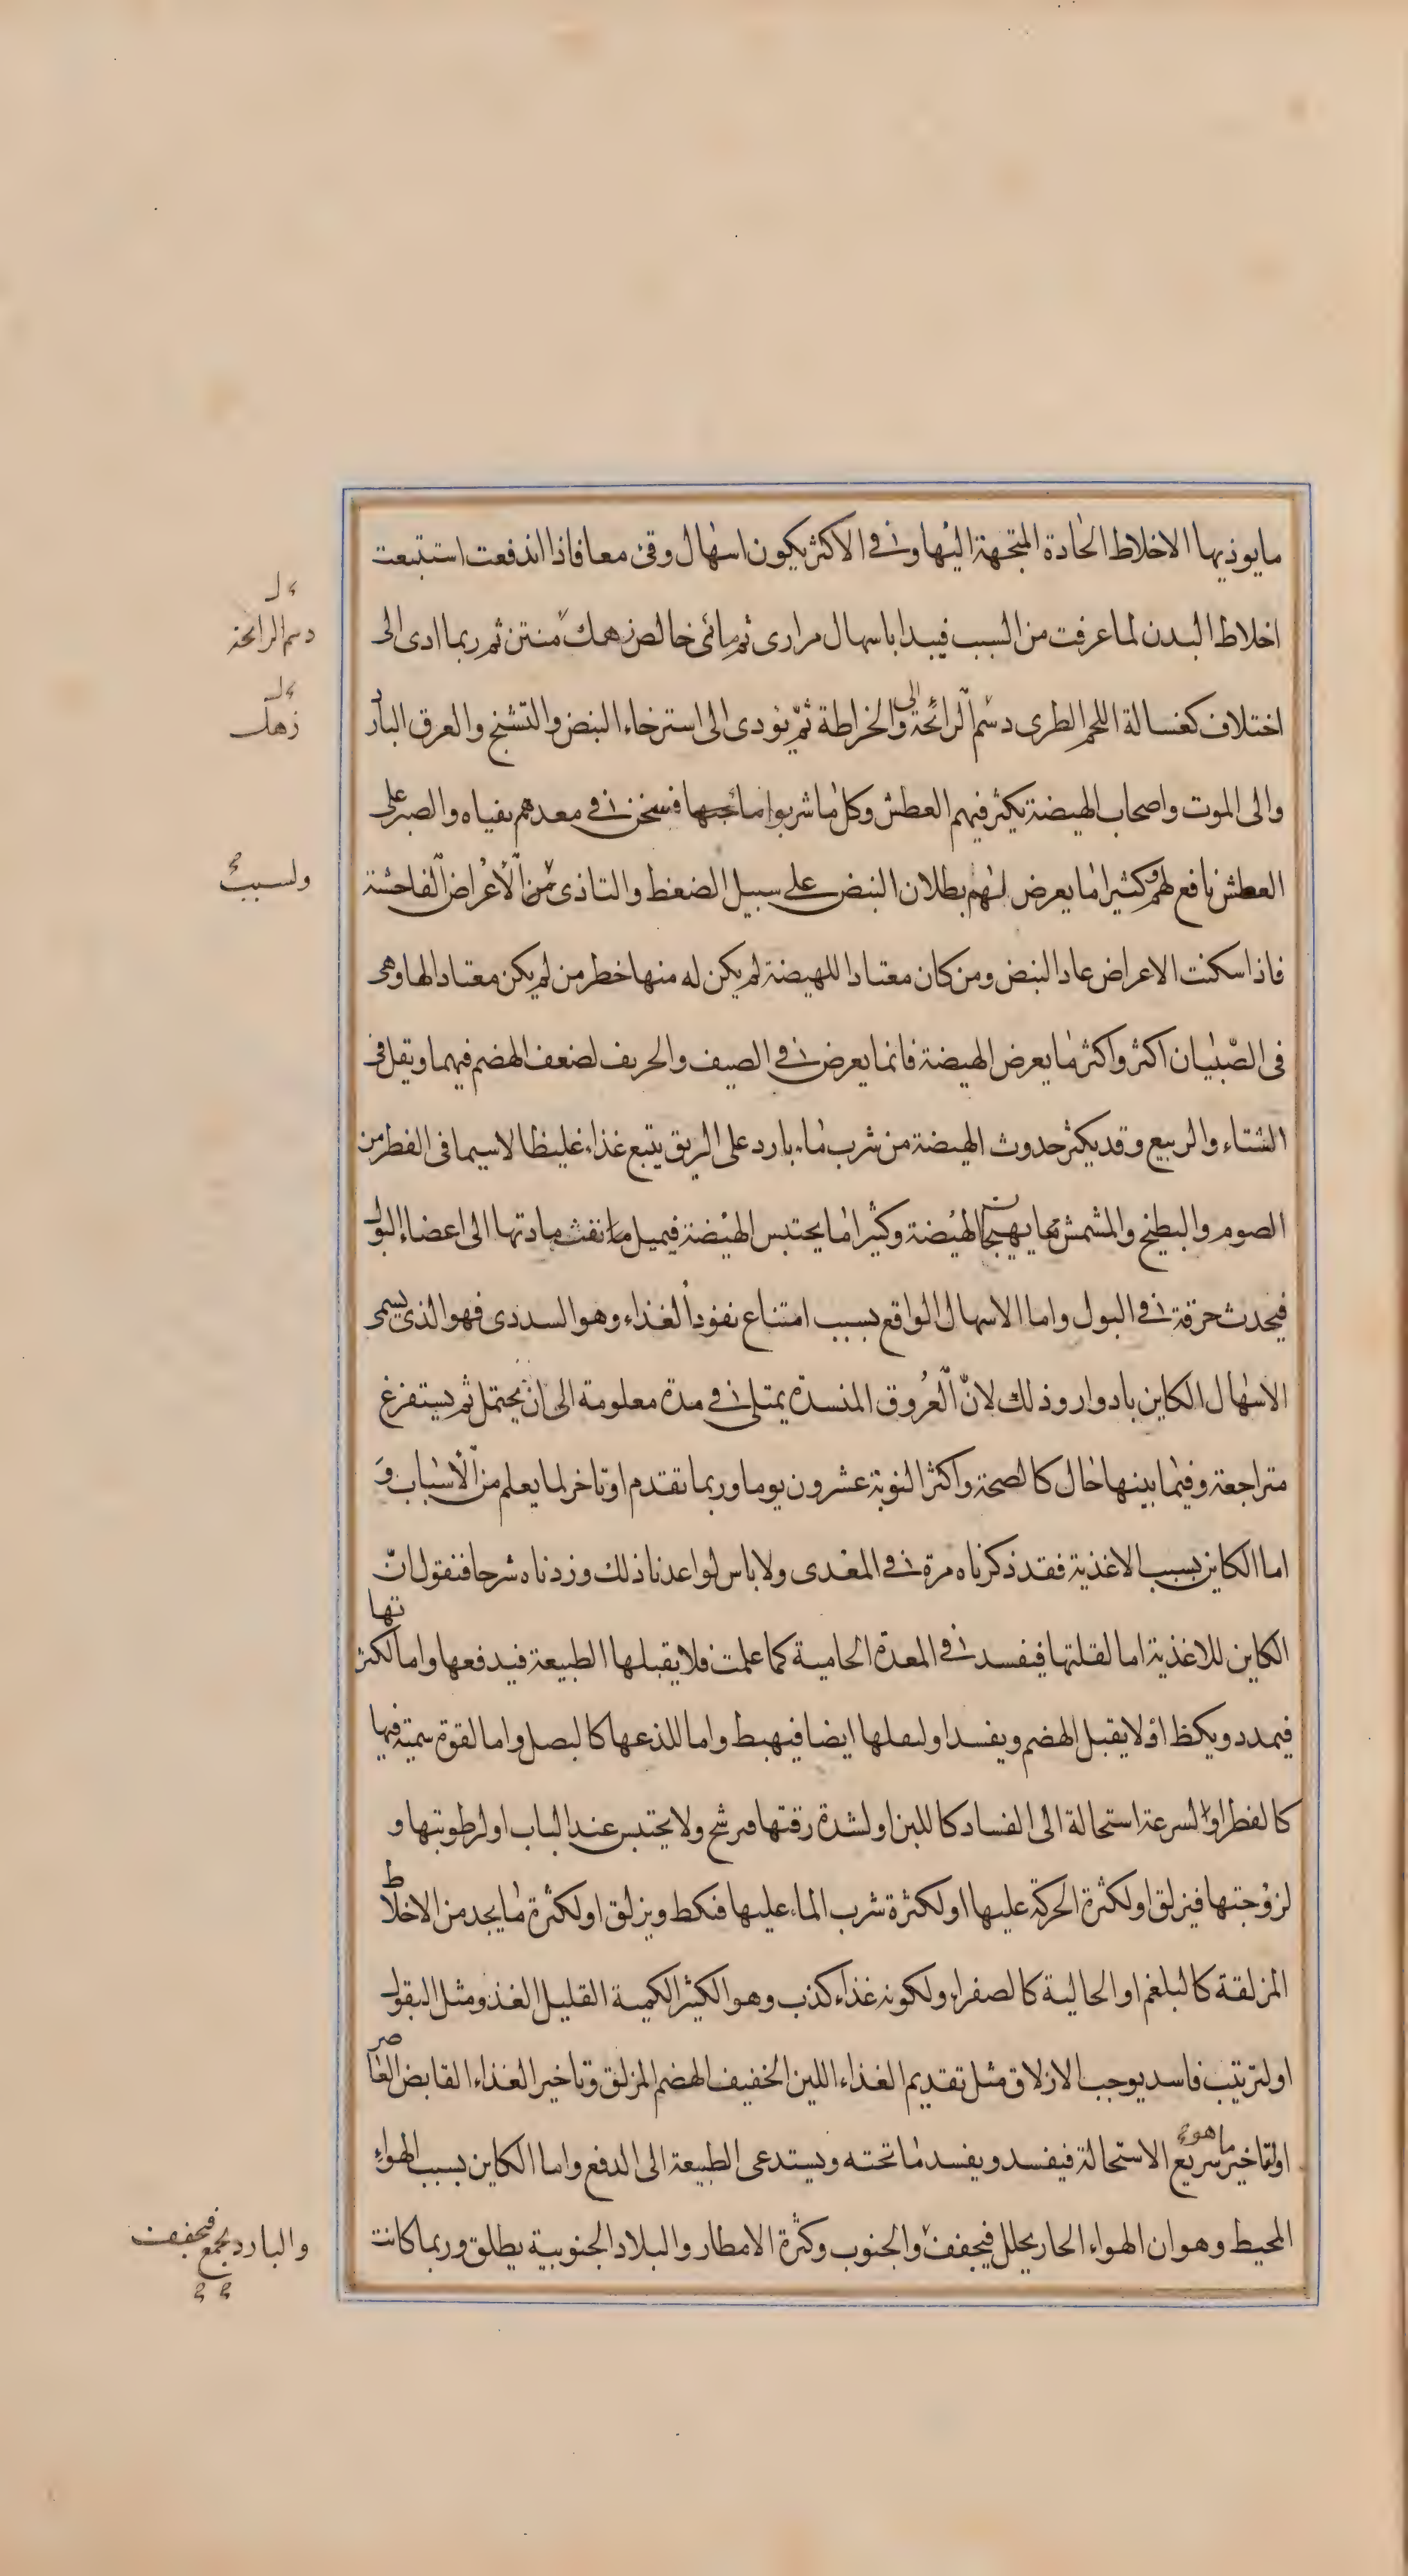 مايوذيها الاخلاط الحادة المتجهة اليها وفي الاكثر يكون اسهال وقئ معا فاذا اندفعت استتبعت
اخلاط البدن لما عرفت من السبب فيبدا باسهال مرارى ثم مائى خالص زهمك منتن ثم ربما ادى الى
دسم الرائحة
زهك
اختلاف كغسالة اللحم الطرى دسم الرائحة والى الخراطة ثم يؤدى الى استرخاء النبض والتشنج والعرق البارد
والى الموت واصحاب الهيضة يكثر فيهم العطش وكل ما شربوا فسخن في معدهم بقياه والصبر على
العطش نافع لهم وكثيرا ما يعرض لهم بطلان النبض على سبيل الضغط والتاذى من الاعراض الفاحشة
ولسبب
فاذا سكنت الاعراض عاد النبض ومن كان معتادا للهيضة لم يكن له منها خطر من لم يكن معتادا لها وهى
فى الصبيان اكثر واكثر ما يعرض الهيضة فانما يعرض في الصيف والحريف لضعف الهضم فيهما ويقل فى
الشتاء والربيع وقد يكثر حدوث الهيضة من شرب ماء بارد على الريق يتبع غذاء غليظا لاسيما فى الفطر من
الصوم والبطيخ والمشمش مما يهيجان الهيضة وكثيرا ما يحتبس الهيضة فيميل مادتها الى اعضاء البول
فيحدث حرقة في البول واما الاسهال الواقع بسبب امتناع نفوذ الغذاء وهو السددى فهو الذى يسمى
الاسهال الكاين بادوار وذلك لان العروق المنسدة يمتلى في مدة معلومة الى ان يحتمل ثم يستفرغ
متراجعة وفيما بينها حال كالصحة واكثر النوبة عشرون يوما وربما تقدم او تاخر لما يعلم من الاسباب و
اما الكاين بسبب الاغذية فقد ذكرناه مرة في المغدى ولا باس لو اعدنا ذلك وزدناه شرحا فنقول ان
الكاين للاغذية اما لقلتها فيفسد في المعدة الحامية كما علمت فلا يقبلها الطبيعة فيدفعها واما لكثرتها
فيمدد ويكظ او لا يقبل الهضم ويفسد او لثقلها ايضا فيهبط واما للذعها كالبصل واما لقوة سمية فيها
كالفطر او لسرعة استحالة الى الفساد كاللبن او لشدة رقتها فيرشح ولا يحتبس عند الباب او لرطوبتها و
لزوجتها فيزلق او لكثرة الحركة عليها او لكثرة شرب الماء عليها فنكظ ويزلق او لكثرة ما يجد من الاخلاط
المزلقة كالبلغم او الحالية كالصفراء ولكونه غذاء كذب وهو الكثير الكمية القليل الغذو مثل البقول
او لترتيب فاسد يوجب الازلاق مثل تقديم الغذاء اللين الخفيف الهضم المزلق وتاخير الغذاء القابض العاصر
او لتاخير ما هو سريع الاستحالة فيفسد ويفسد ما تحته ويستدعى الطبيعة الى الدفع واما الكاين بسبب الهواء
المحيط وهو ان الهواء الحار يحلل فيجفف والجنوب وكثرة الامطار والبلاد الجنوبية يطلق وربما كانت
والبارد يجمع فيجفف